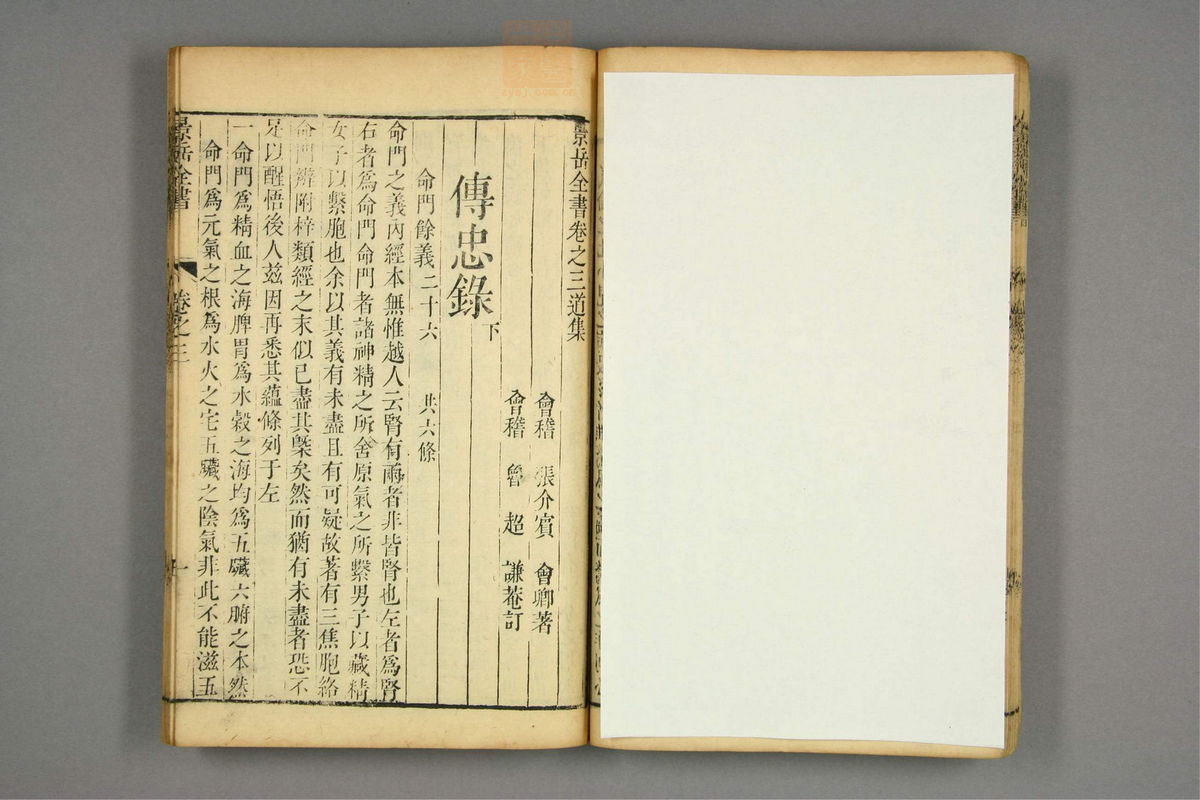 景岳全書卷之三道集
會稽 張介賓 會卿著
會稽 魯超 謙菴訂
傳忠錄 下
命門餘義二十六 共六條
命門之義內經本無惟越人云腎有兩者非皆腎也左者為腎
右者為命門命門者諸神精之所舍原氣之所繫男子以藏精
女子以繫胞也余以其義有未盡且有可疑故著有三焦胞絡
命門辨附梓類經之末似已盡其槩矣然而猶有未盡者恐不
足以醒悟後人茲因再悉其蘊條列于左
一命門為精血之海脾胃為水穀之海均為五臟六腑之本然
命門為元氣之根為水火之宅五臟之陰氣非此不能滋五
景岳全書 卷之三 一